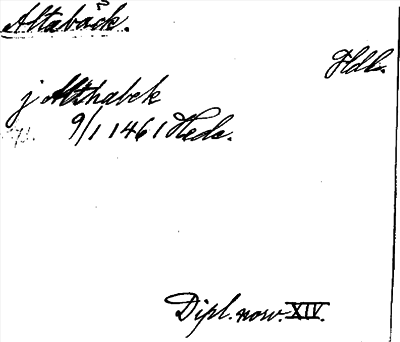 Altabäck.
Hdl.
j Althabek
9/1 1461 Heda.
Dipl. norv. XIV.